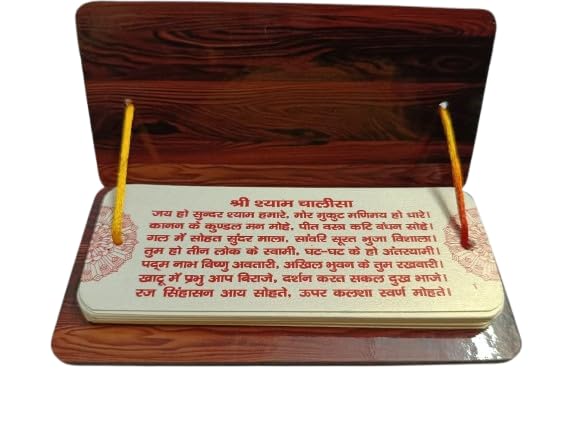 श्री श्याम चालीसा
जय हो सुन्दर श्याम हमारे, मोर मुकुट मणिमय हो धारे।
कानन के कुण्डल मन मोहे, पीत वस्त्र कटि बंधन सोहे।
गल में सोहत सुंदर माला, सांवरि सूरत भुजा विशाला।
तुम हो तीन लोक के स्वामी, घट-घट के हो अंतरयामी।
पद्म नाभ विष्णु अवतारी, अखिल भुवन के तुम रखवारी।
खाटू में प्रभु आप बिराजे, दर्शन करत सकल दुख भाजे।
रज सिंहासन आय सोहते, ऊपर कलशा स्वर्ण मोहते।